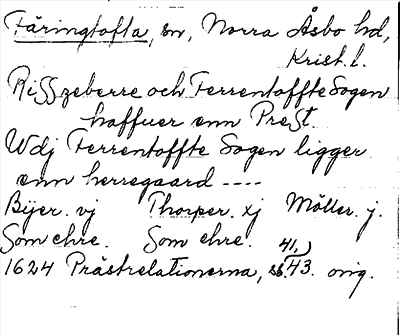 Färingtofta, sn, Norra Åsbo hd,
Krist. l.
Risszeberre och Ferrentoffte Sogen
haffuer enn Prest.
Wdj Ferrentoffte Sogen ligger
enn herregaard ----
Bÿer. vj Thorper. xj Möller. j.
Som ehre. Som ehre.
1624 Prästrelationerna, s. 41, 43. orig.